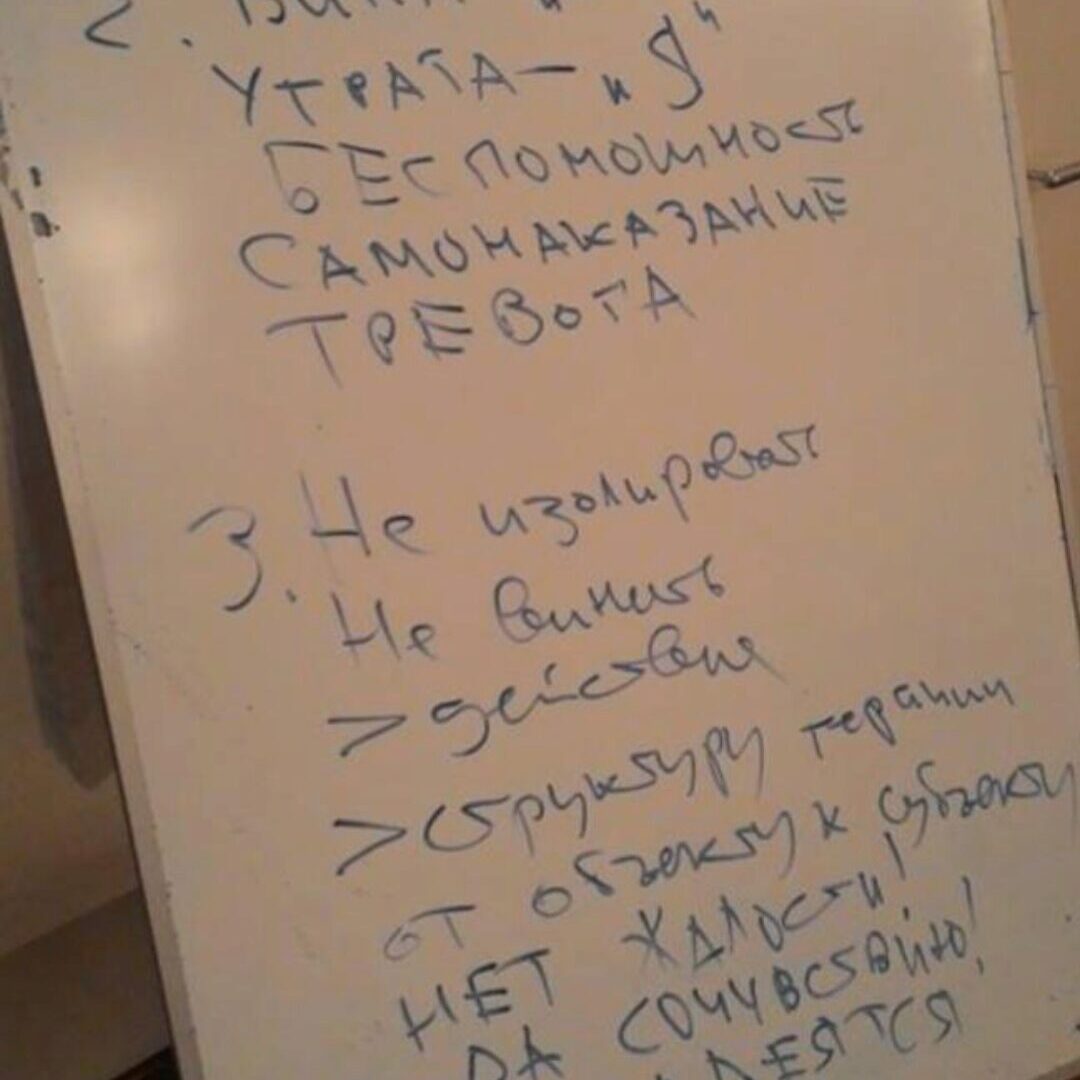 2.
УТРАТА — "Я"
БЕСПОМОШНОСТЬ
САМОНАКАЗАНИЕ
ТРЕВОГА
3. Не изолировать
Не винить
> действие
> структуру терапии
от объекту к субъекту
НЕТ ЖАЛОСТИ!
ДА СОЧУВСТВИЮ!